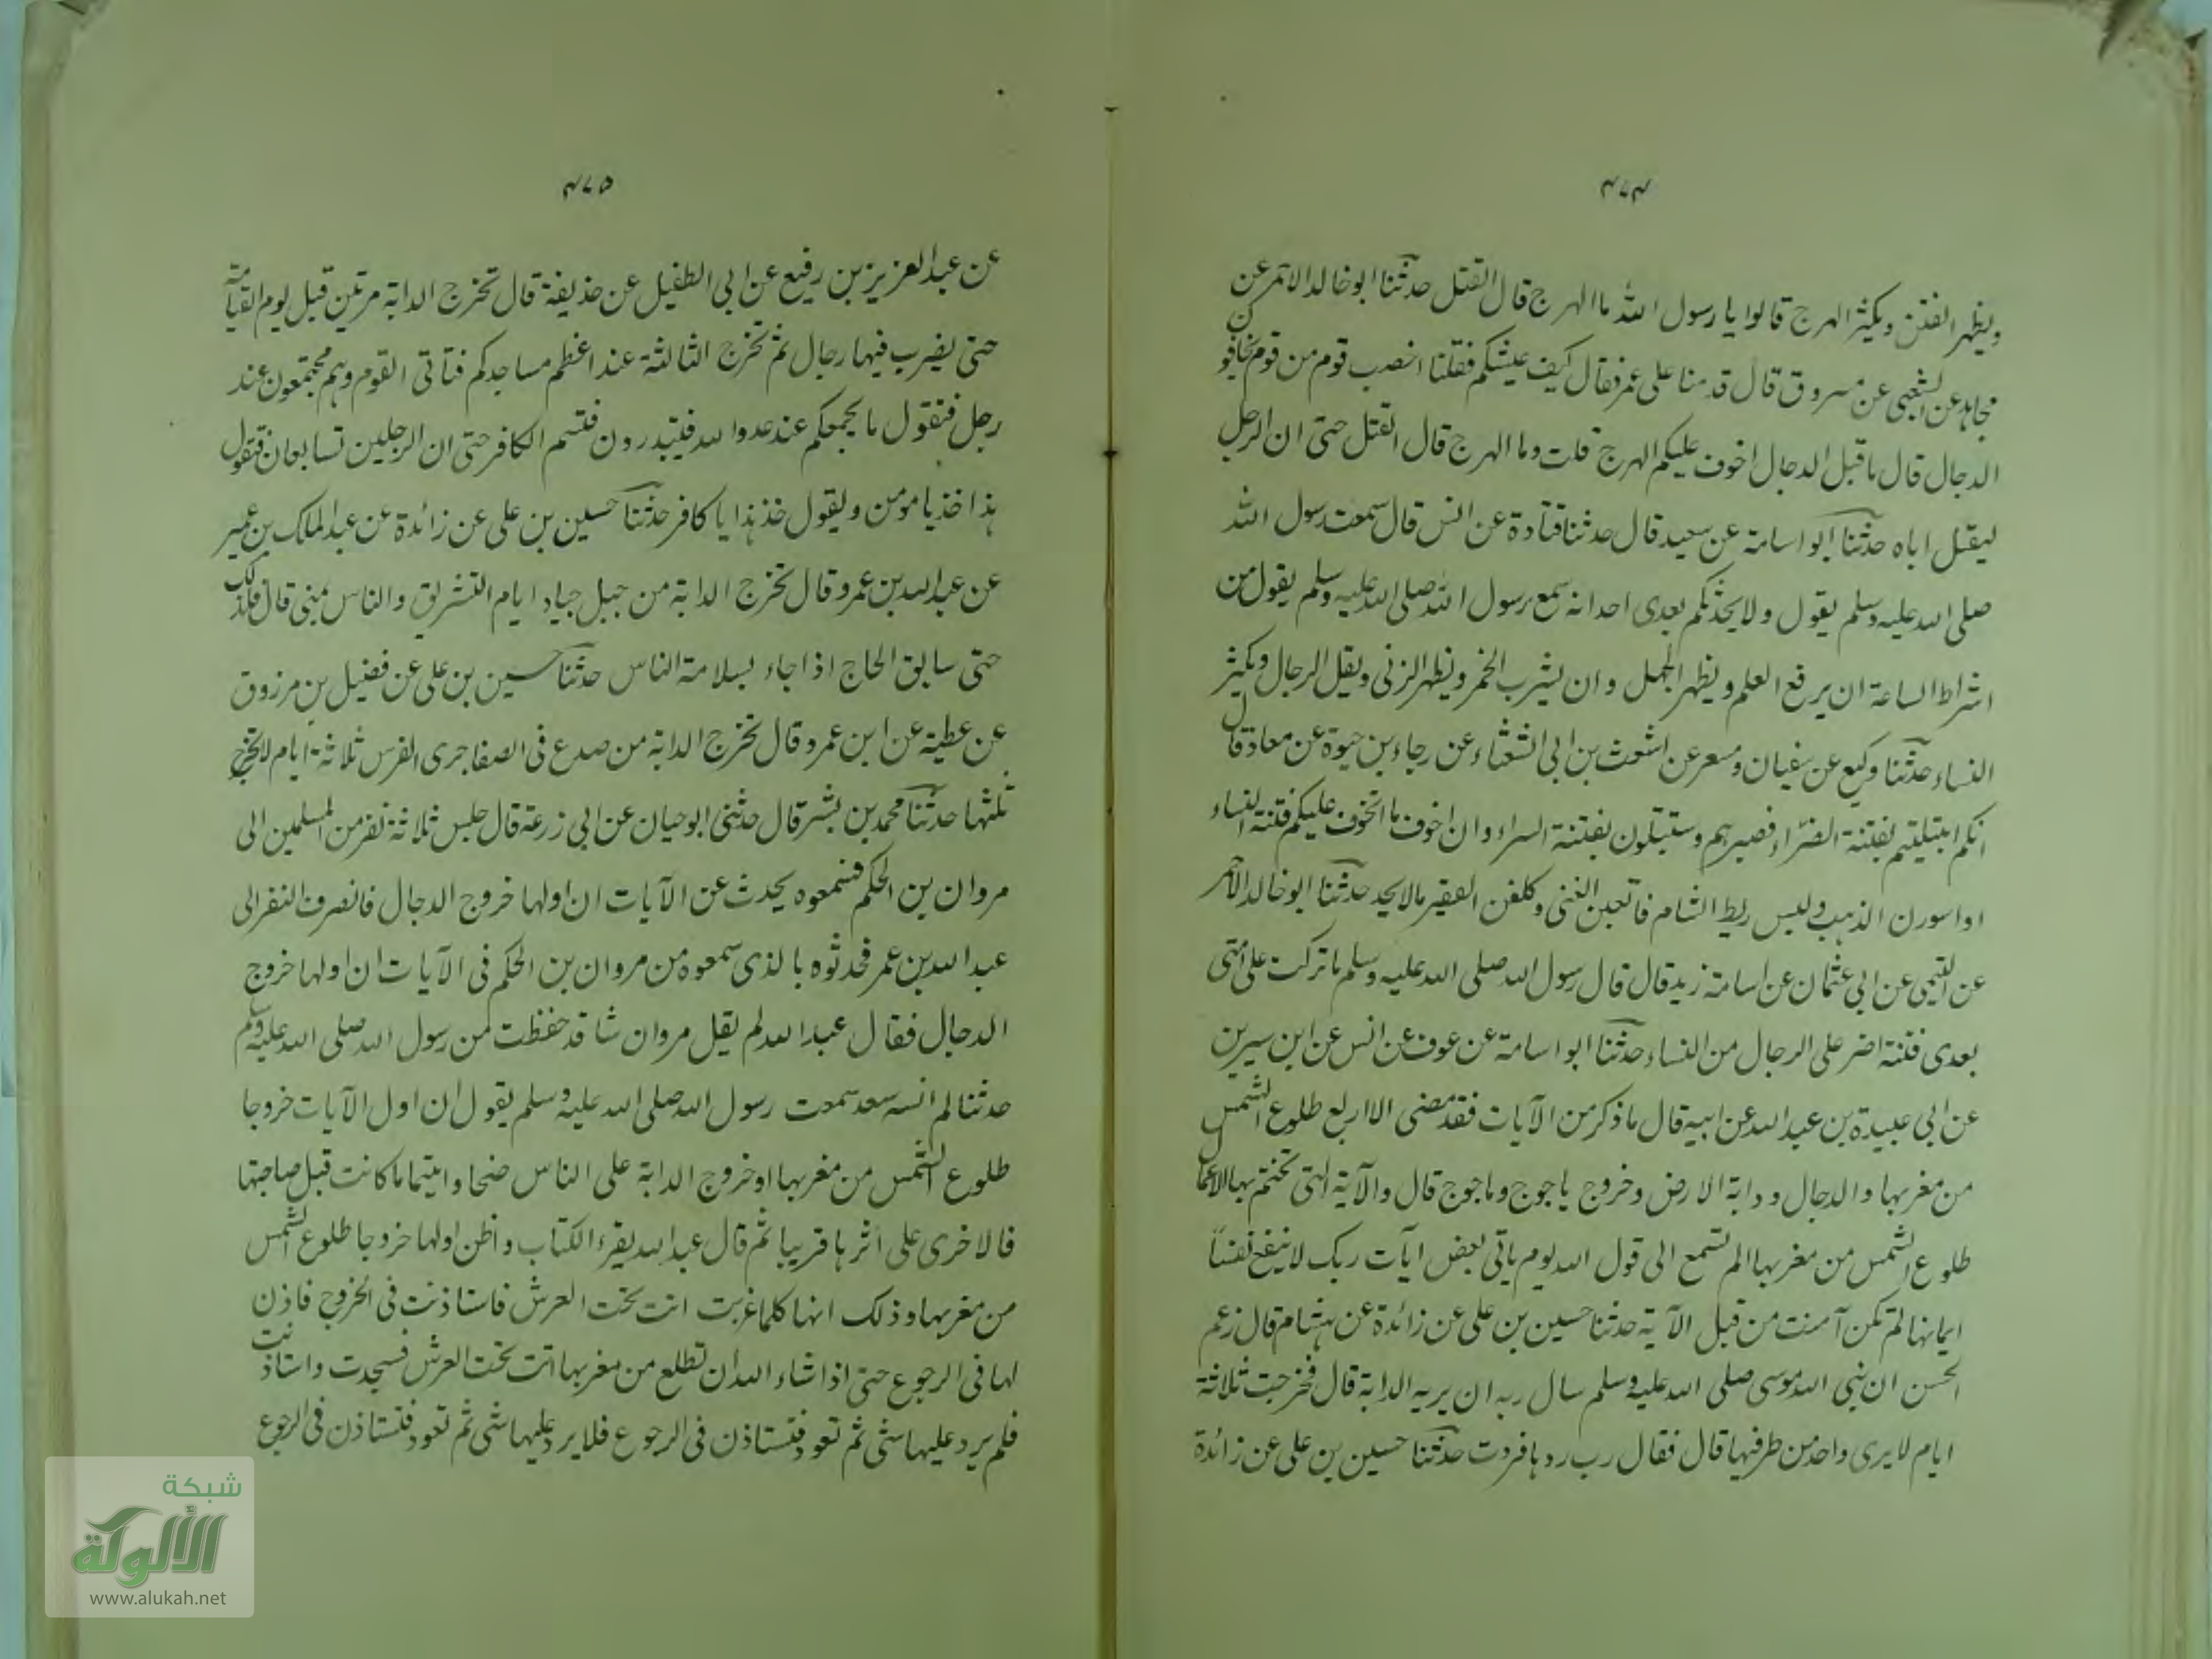 ۴۷۴
ويظهر الفتن ويكثر الهرج قالوا يا رسول الله ما الهرج قال القتل حدثنا ابو خالد الاحمر عن
مجاهد عن الشعبى عن مسروق قال قدمنا على عمر فقال كيف عيشكم فقلنا اخصب قوم من قوم يخافون
الدجال قال ما قبل الدجال اخوف عليكم الهرج قلت وما الهرج قال القتل حتى ان الرجل
ليقتل اباه حدثنا ابو اسامة عن سعيد قال حدثنا قتادة عن انس قال سمعت رسول الله
صلى الله عليه وسلم يقول ولا يحدثكم بعدى احد انه سمع رسول الله صلى الله عليه وسلم يقول من
اشراط الساعة ان يرفع العلم ويظهر الجهل وان يشرب الخمر ويظهر الزنى ويقل الرجال ويكثر
النساء حدثنا وكيع عن سفيان ومسعر عن اشعث بن ابى الشعثاء عن رجاء بن حيوة عن معاذ قال
انكم ابتليتم بفتنة الضراء فصبرتم وستبتلون بفتنة السراء وان اخوف ما اتخوف عليكم فتنة النساء
اذا سورن الذهب ولبس ريط الشام فاتعبن الغنى وكلفن الفقير ما لا يجد حدثنا ابو خالد الاحمر
عن التيمى عن ابى عثمان عن اسامة زيد قال قال رسول الله صلى الله عليه وسلم ما تركت على امتى
بعدى فتنة اضر على الرجال من النساء حدثنا ابو اسامة عن عوف عن انس عن ابن سيرين
عن ابى عبيدة بن عبد الله عن ابيه قال ما ذكر من الآيات فقد مضى الا اربع طلوع الشمس
من مغربها والدجال ودابة الارض وخروج ياجوج وماجوج قال والآية التى تختم بها الاعمال
طلوع الشمس من مغربها الم تسمع الى قول الله يوم ياتى بعض آيات ربك لا ينفع نفسا
ايمانها لم تكن آمنت من قبل الآية حدثنا حسين بن على عن زائدة عن هشام قال زعم
الحسن ان نبى الله موسى صلى الله عليه وسلم سال ربه ان يريه الدابة قال فخرجت ثلاثة
ايام لا يرى واحد من طرفيها قال فقال رب ردها فردت حدثنا حسين بن على عن زائدة
۴۷۵
عن عبد العزيز بن رفيع عن ابى الطفيل عن حذيفة قال تخرج الدابة مرتين قبل يوم القيامة
حتى يضرب فيها رجال ثم تخرج الثالثة عند اعظم مساجدكم فتأتى القوم وهم مجتمعون عند
رجل فتقول ما يجمعكم عند عدو الله فيتبدرون فتسم الكافر حتى ان الرجلين تسابعان فتقول
هذا خذ يا مومن ويقول خذ هذا يا كافر حدثنا حسين بن على عن زائدة عن عبد الملك بن عمير
عن عبد الله بن عمرو قال تخرج الدابة من جبل جياد ايام التشريق والناس بمنى قال فلذلك
حتى سابق الحاج اذا جاء بسلامة الناس حدثنا حسين بن على عن فضيل بن مرزوق
عن عطية عن ابن عمرو قال تخرج الدابة من صدع فى الصفا جرى الفرس ثلاثة ايام لا تخرج
ثلثها حدثنا محمد بن بشر قال حدثنى ابو حيان عن ابى زرعة قال جلس ثلاثة نفر من المسلمين الى
مروان بن الحكم فسمعوه يحدث عن الآيات ان اولها خروج الدجال فانصرف النفر الى
عبد الله بن عمر فحدثوه بالذى سمعوه من مروان بن الحكم فى الآيات ان اولها خروج
الدجال فقال عبد الله لم يقل مروان شا قد حفظت من رسول الله صلى الله عليه وسلم
حدثنا لم انسه سعد سمعت رسول الله صلى الله عليه وسلم يقول ان اول الآيات خروجا
طلوع الشمس من مغربها او خروج الدابة على الناس ضحا وايتهما ما كانت قبل صاحبتها
فالاخرى على اثرها قريبا ثم قال عبد الله يقرء الكتاب واظن اولها خروجا طلوع الشمس
من مغربها وذلك انها كلما غربت اتت تحت العرش فاستاذنت فى الخروج فاذن
لها فى الرجوع حتى اذا شاء الله ان تطلع من مغربها اتت تحت العرش فسجدت واستاذنت
فلم يرد عليها شى ثم تعود فتستاذن فى الرجوع فلا يرد عليها شى ثم تعود فتستاذن فى الرجوع
شبكة
الألوكة
www.alukah.net